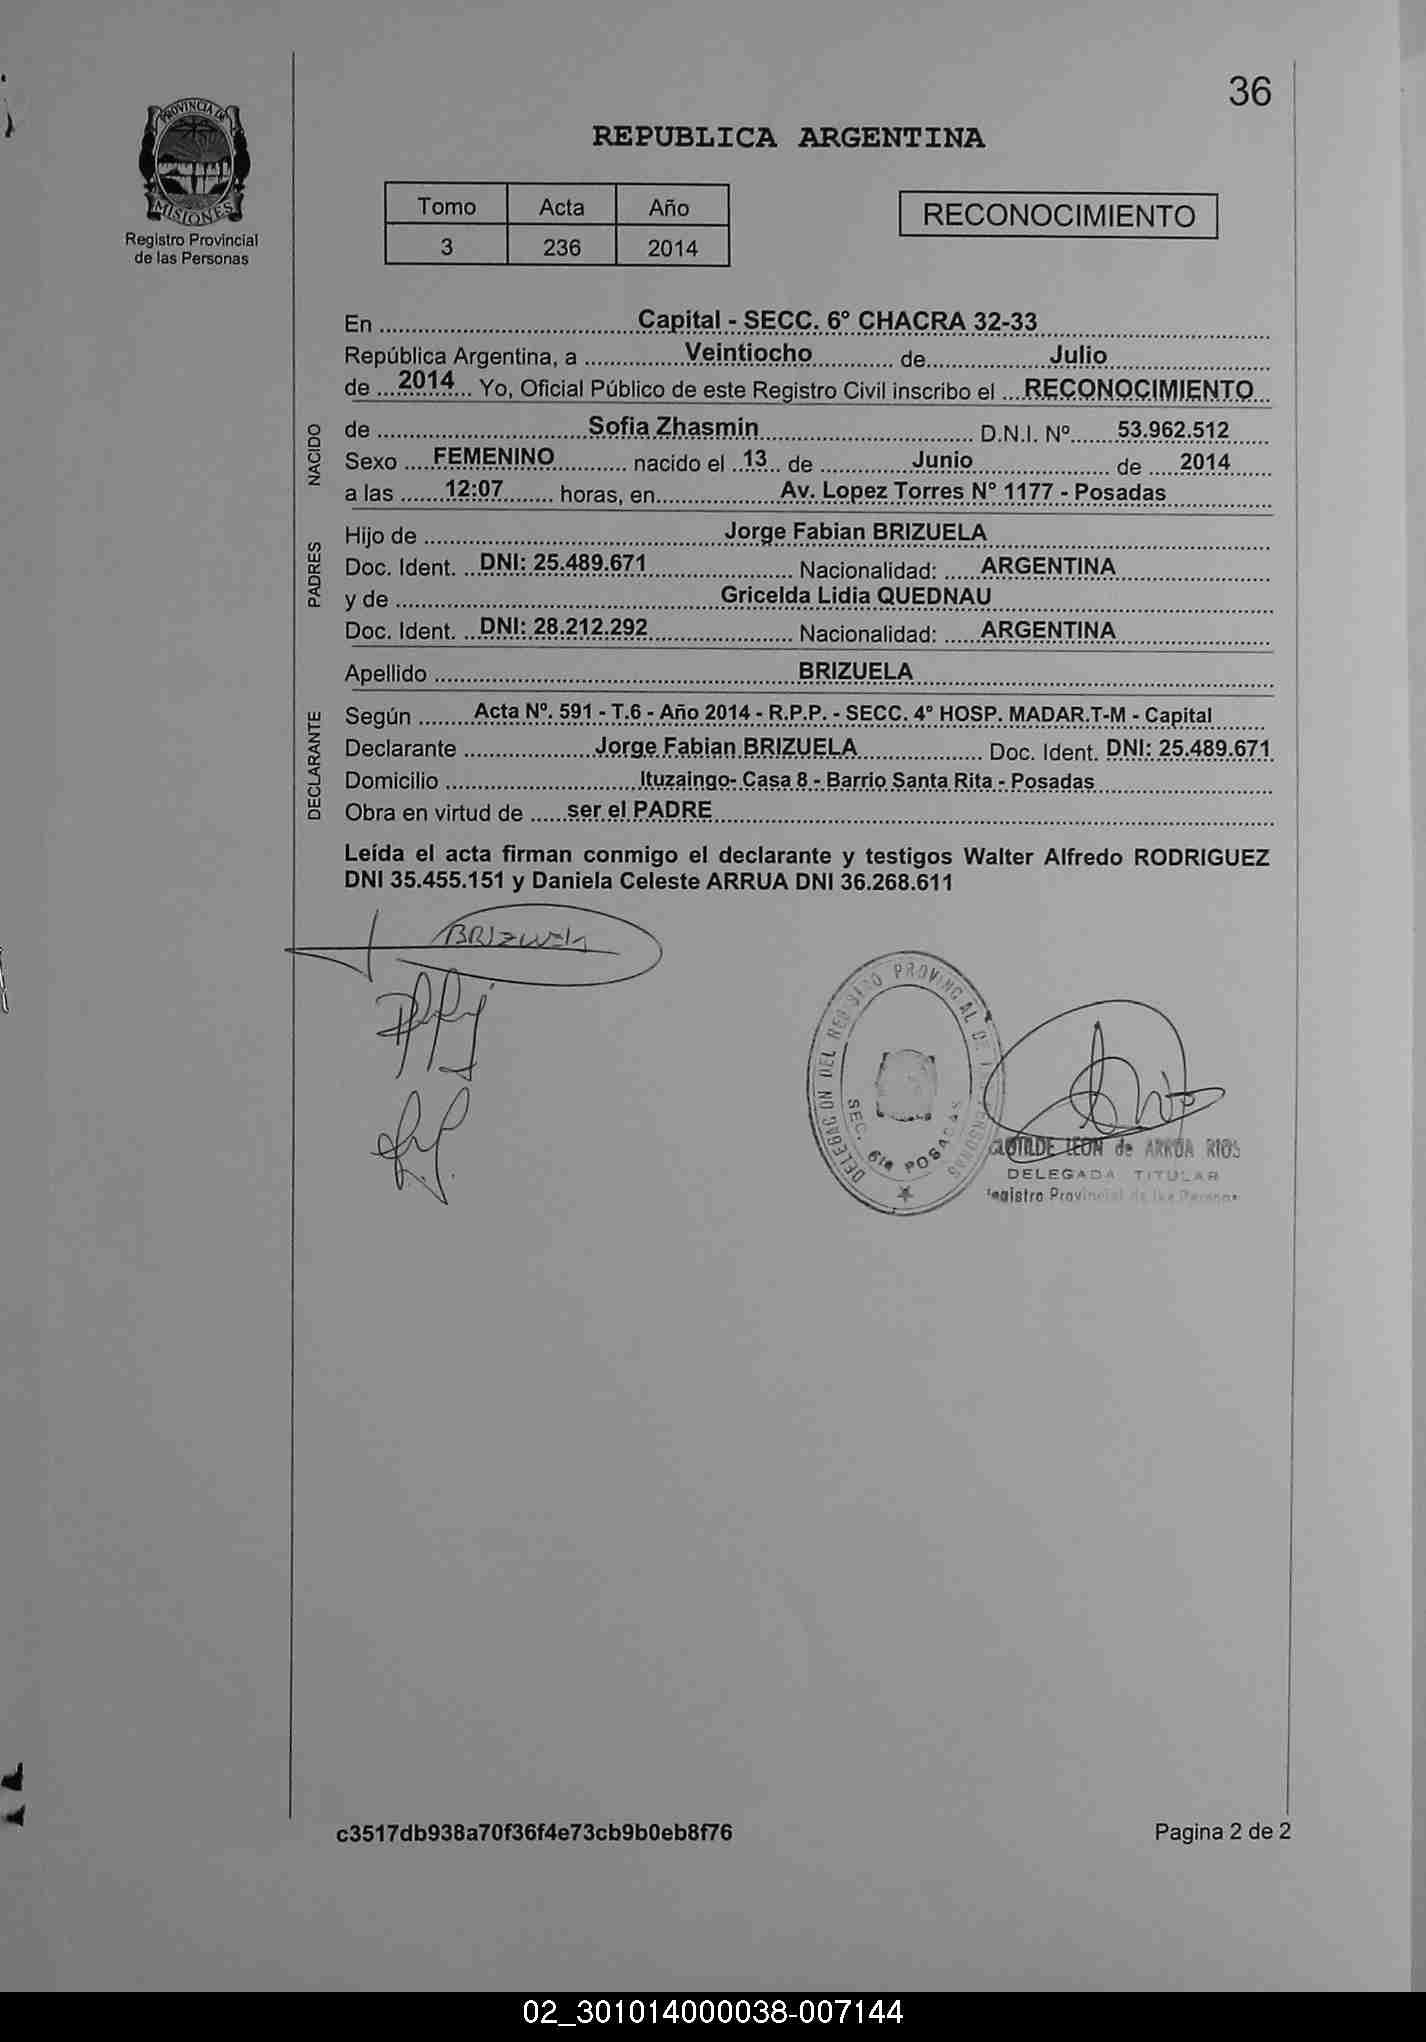 36
PROVINCIA DE
MISIONES
Registro Provincial
de las Personas
REPUBLICA ARGENTINA
Tomo Acta Año
3 236 2014
RECONOCIMIENTO
En ........ Capital - SECC. 6º CHACRA 32-33 ........
República Argentina, a ........ Veintiocho ........ de ........ Julio ........
de ... 2014 ... Yo, Oficial Público de este Registro Civil inscribo el ... RECONOCIMIENTO ...
NACIDO
de ........ Sofia Zhasmin ........ D.N.I. Nº ...... 53.962.512 ......
Sexo .... FEMENINO ........ nacido el .. 13 .. de ........ Junio ........ de .... 2014 ......
a las ...... 12:07 ...... horas, en ........ Av. Lopez Torres Nº 1177 - Posadas ........
PADRES
Hijo de ........ Jorge Fabian BRIZUELA ........
Doc. Ident. .. DNI: 25.489.671 ........ Nacionalidad: ..... ARGENTINA ........
y de ........ Gricelda Lidia QUEDNAU ........
Doc. Ident. .. DNI: 28.212.292 ........ Nacionalidad: ..... ARGENTINA ........
Apellido ........ BRIZUELA ........
DECLARANTE
Según ........ Acta Nº. 591 - T.6 - Año 2014 - R.P.P. - SECC. 4º HOSP. MADAR.T-M - Capital ........
Declarante ........ Jorge Fabian BRIZUELA ........ Doc. Ident. DNI: 25.489.671
Domicilio ........ Ituzaingo- Casa 8 - Barrio Santa Rita - Posadas ........
Obra en virtud de ..... ser el PADRE ........
Leída el acta firman conmigo el declarante y testigos Walter Alfredo RODRIGUEZ
DNI 35.455.151 y Daniela Celeste ARRUA DNI 36.268.611
BRIZUELA
DELEGACION DEL REGISTRO PROVINCIAL DE LAS PERSONAS
SEC. 6ta POSADAS
CLOTILDE LEON de ARRUA RIOS
DELEGADA TITULAR
Registro Provincial de las Personas
c3517db938a70f36f4e73cb9b0eb8f76
Pagina 2 de 2
02_301014000038-007144